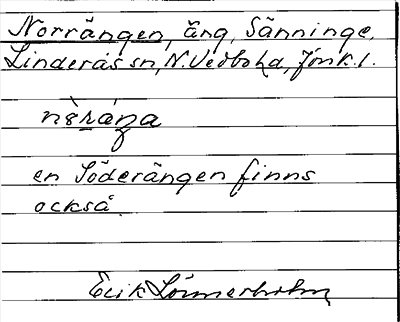 Norrängen, äng, Sänninge,
Linderås sn, N. Vedbo hd, Jönk. l.
nèráŋa
en Söderängen finns
också.
Erik Lönnerholm